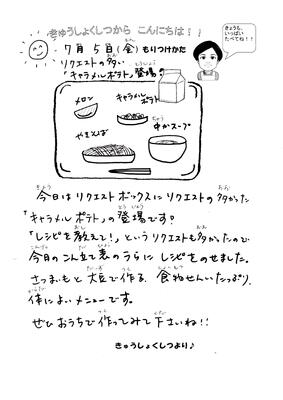 きゅうしょくしつから こんにちは!!
きょうも、
いっぱい
たべてね!!
7月5日(金)もりつけかた
リクエストの多い
「キャラメルポテト」登場!
メロン
キャラメル
ポテト
やきそば
中かスープ
今日はリクエストボックスにリクエストの多かった
「キャラメルポテト」の登場です?
「レシピを教えて!」というリクエストも多かったので
今日のこん立て表のうらにレシピをのせました。
さつまいもと大豆で作る、食物せんいたっぷり、
体によいメニューです。
ぜひおうちで作ってみて下さいね!!
きゅうしょくしつより♪